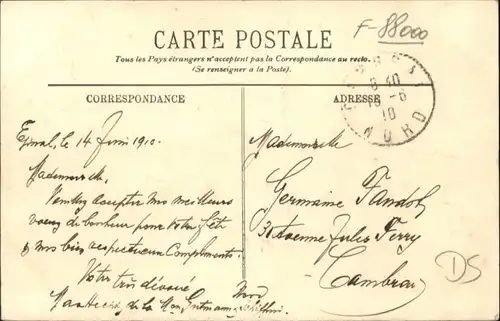 F-88000
CARTE POSTALE
Tous les Pays étrangers n'acceptent pas la Correspondance au recto.
(Se renseigner à la Poste).
CORRESPONDANCE
ADRESSE
NORD
Epinal, le 14 Juin 1910
Mademoiselle,
Veuillez accepter mes meilleurs
voeux de bonheur pour votre fête
& mes bien respectueux Compliments.
Votre très dévoué
de la Mon Gutmann
Mademoiselle
Germaine
Avenue Jules Ferry
Cambrai
Nord
DS